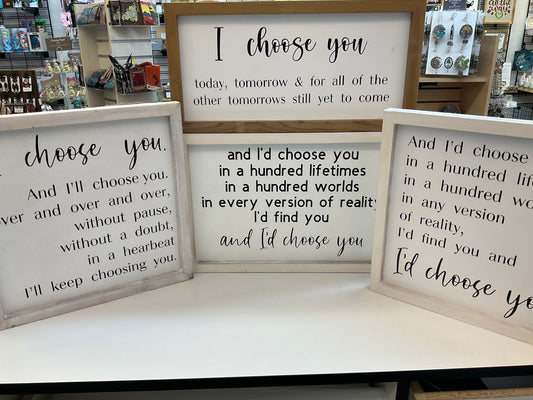 I choose you
today, tomorrow & for all of the
other tomorrows still yet to come
choose you.
And I'll choose you.
over and over,
without pause,
without a doubt,
in a hearbeat
I'll keep choosing you.
and I'd choose you
in a hundred lifetimes
in a hundred worlds
in every version of reality
I'd find you
and I'd choose you
And I'd choose
in a hundred
in a hundred
in any version
of reality,
I'd find you and
I'd choose